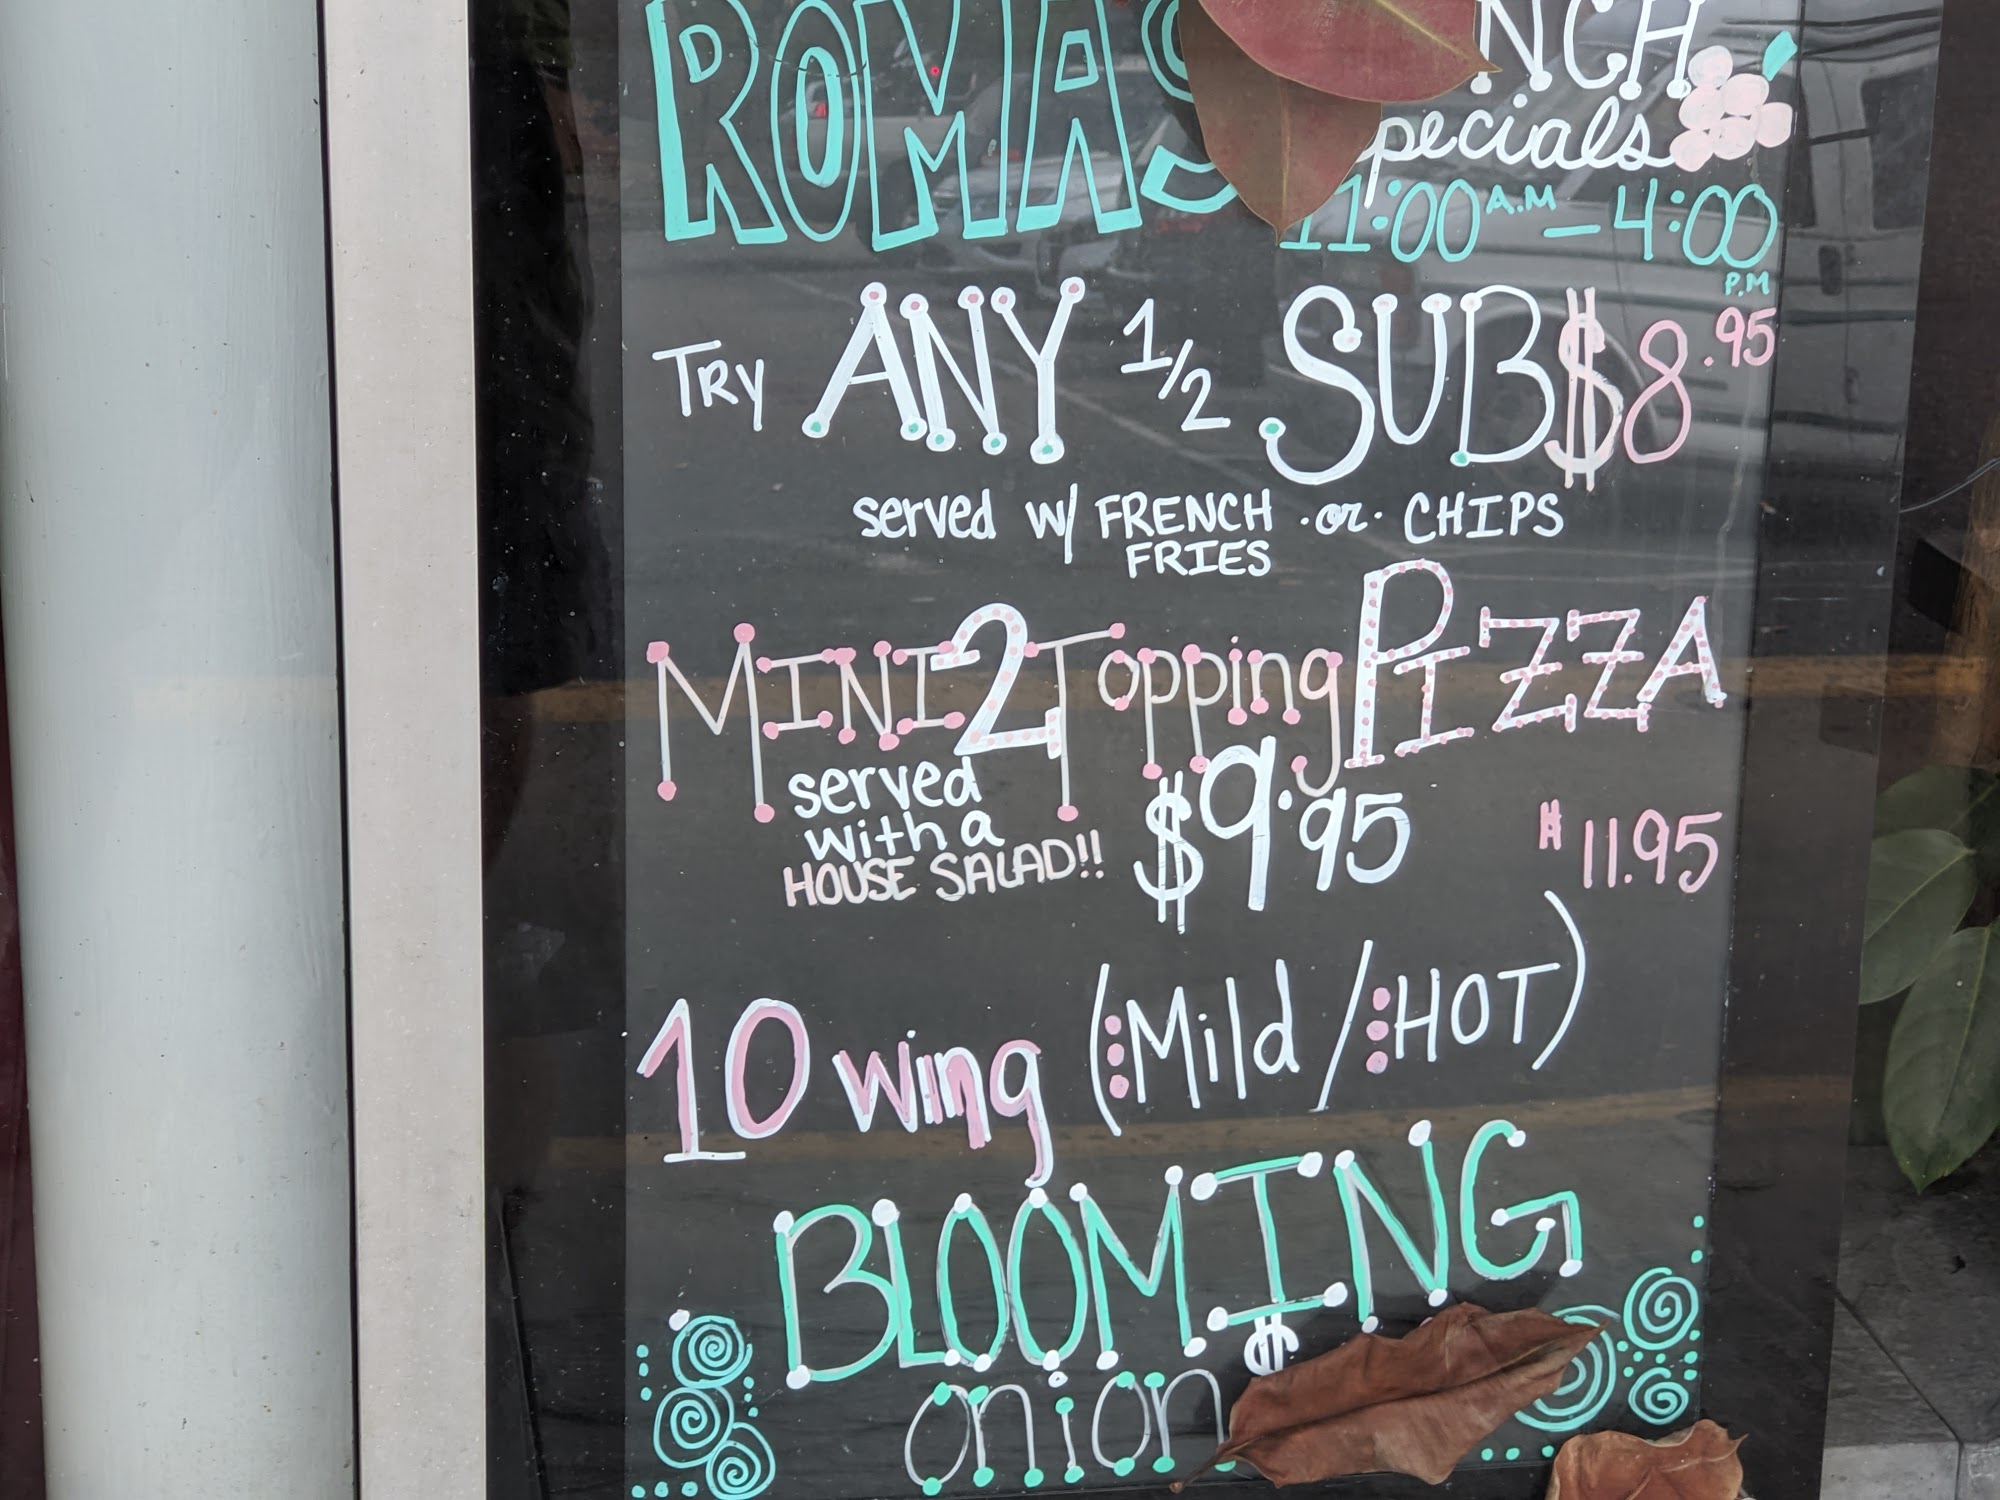 ROMAS
NCH
pecials
11:00 A.M — 4:00 P.M
TRY ANY 1/2 SUB $8.95
served w/ FRENCH FRIES ·or· CHIPS
MINI 2 Topping PIZZA
served with a HOUSE SALAD!! $9.95
$11.95
10 wing (:Mild/:HOT)
BLOOMING
onion $